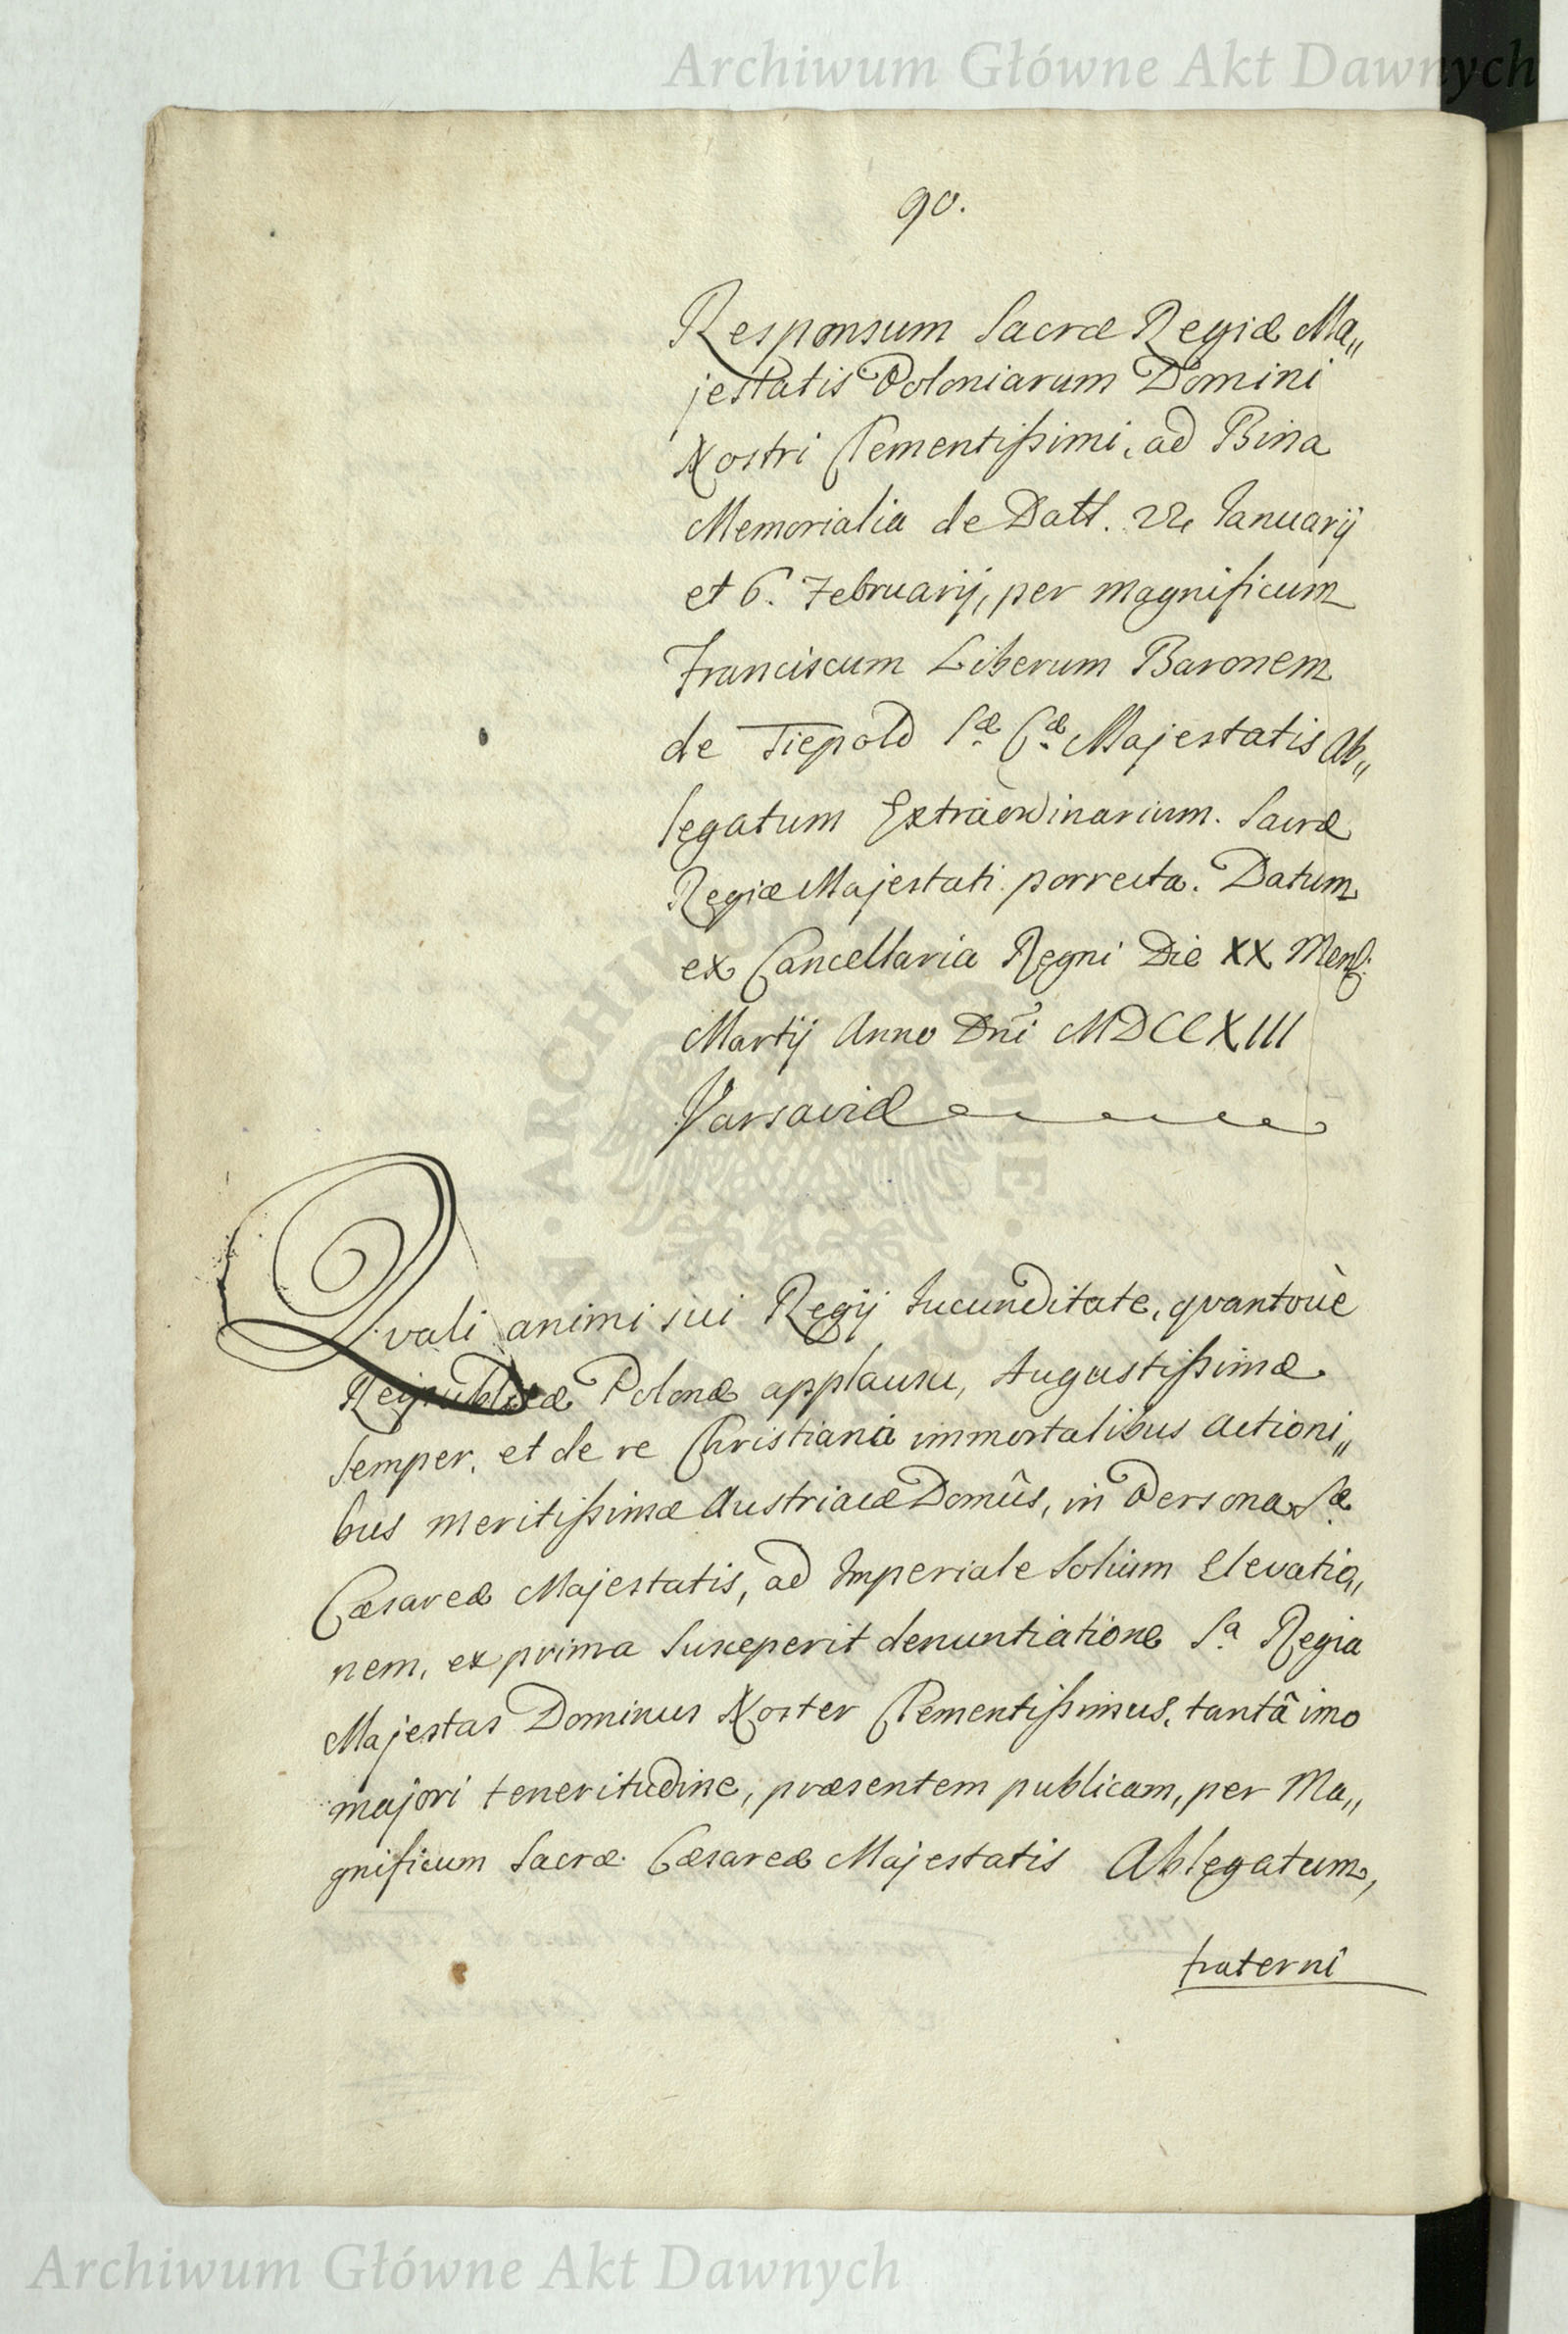 Archiwum Główne Akt Dawnych
90.
Responsum Sacræ Regiæ Ma„
jestatis Poloniarum Domini
Nostri Clementissimi, ad Bina
Memorialia de Datt. 22 Januarij
et 6. Februarij, per magnificum
Franciscum Liberum Baronem
de Tiepold Sæ. Cæ. Majestatis Ab„
legatum Extraordinarium. Sacræ
Regiæ Majestati porrecta. Datum
ex Cancellaria Regni Die XX Mens:
Martij Anno Dni MDCCXIII
Varsaviæ
Qvali animi sui Regij Jucunditate, qvantovè
Reipublicæ Polonæ applausu, Augustissimæ
semper, et de re Christiana immortalibus actioni„
bus meritissimæ Austriacæ Domûs, in Persona Sæ.
Cæsareæ Majestatis, ad Imperiale Solium Elevatio„
nem, ex prima susceperit denuntiatione S.a Regia
Majestas Dominus Noster Clementissimus, tantâ imo
majori teneritudine, præsentem publicam, per Ma„
gnificum Sacræ Cæsareæ Majestatis Ablegatum,
fraterni
Archiwum Główne Akt Dawnych